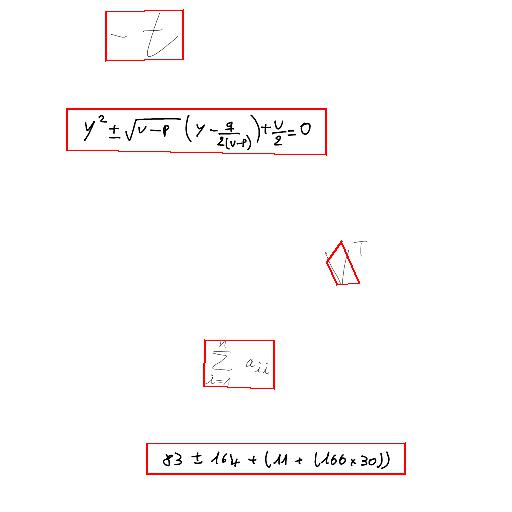 -t
y² ± √(v-p) (y - q/2(v-p)) + v/2 = 0
V^T
∑_{i=1}^{n} a_{ii}
83 ± 164 + (11 + (166 × 30))